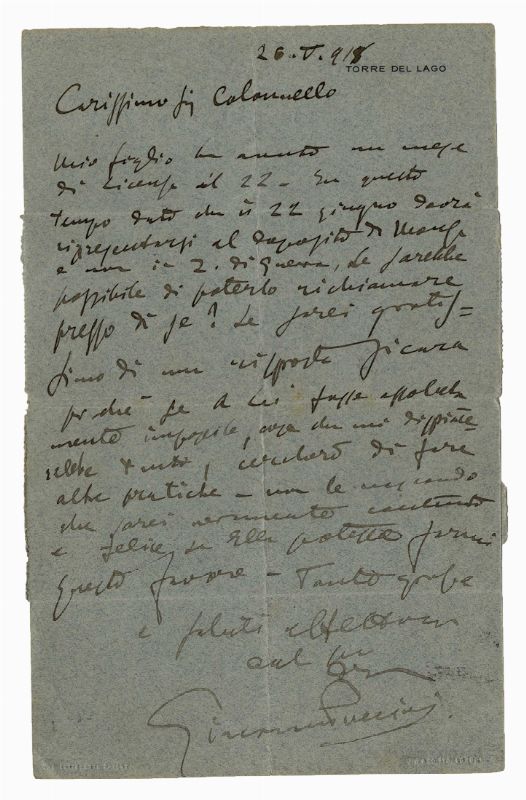 26.V.918
TORRE DEL LAGO
Carissimo Sig Colonnello
Mio figlio ha avuto un mese
di licenza il 22 – In questo
tempo dato che il 22 giugno dovrà
ripresentarsi al deposito di
e non in Z. di guerra, Le sarebbe
possibile di poterlo richiamare
presso di se? Le sarei gratis=
simo di una risposta sicura
perchè se a Lei fosse assoluta
mente impossibile, cosa che mi dispiace
rebbe tanto, cercherò di fare
altre pratiche – non le nascondo
che sarei veramente contento
e felice se Ella potesse farmi
questo favore – Tante grazie
e saluti affettuosi
dal
Giacomo Puccini